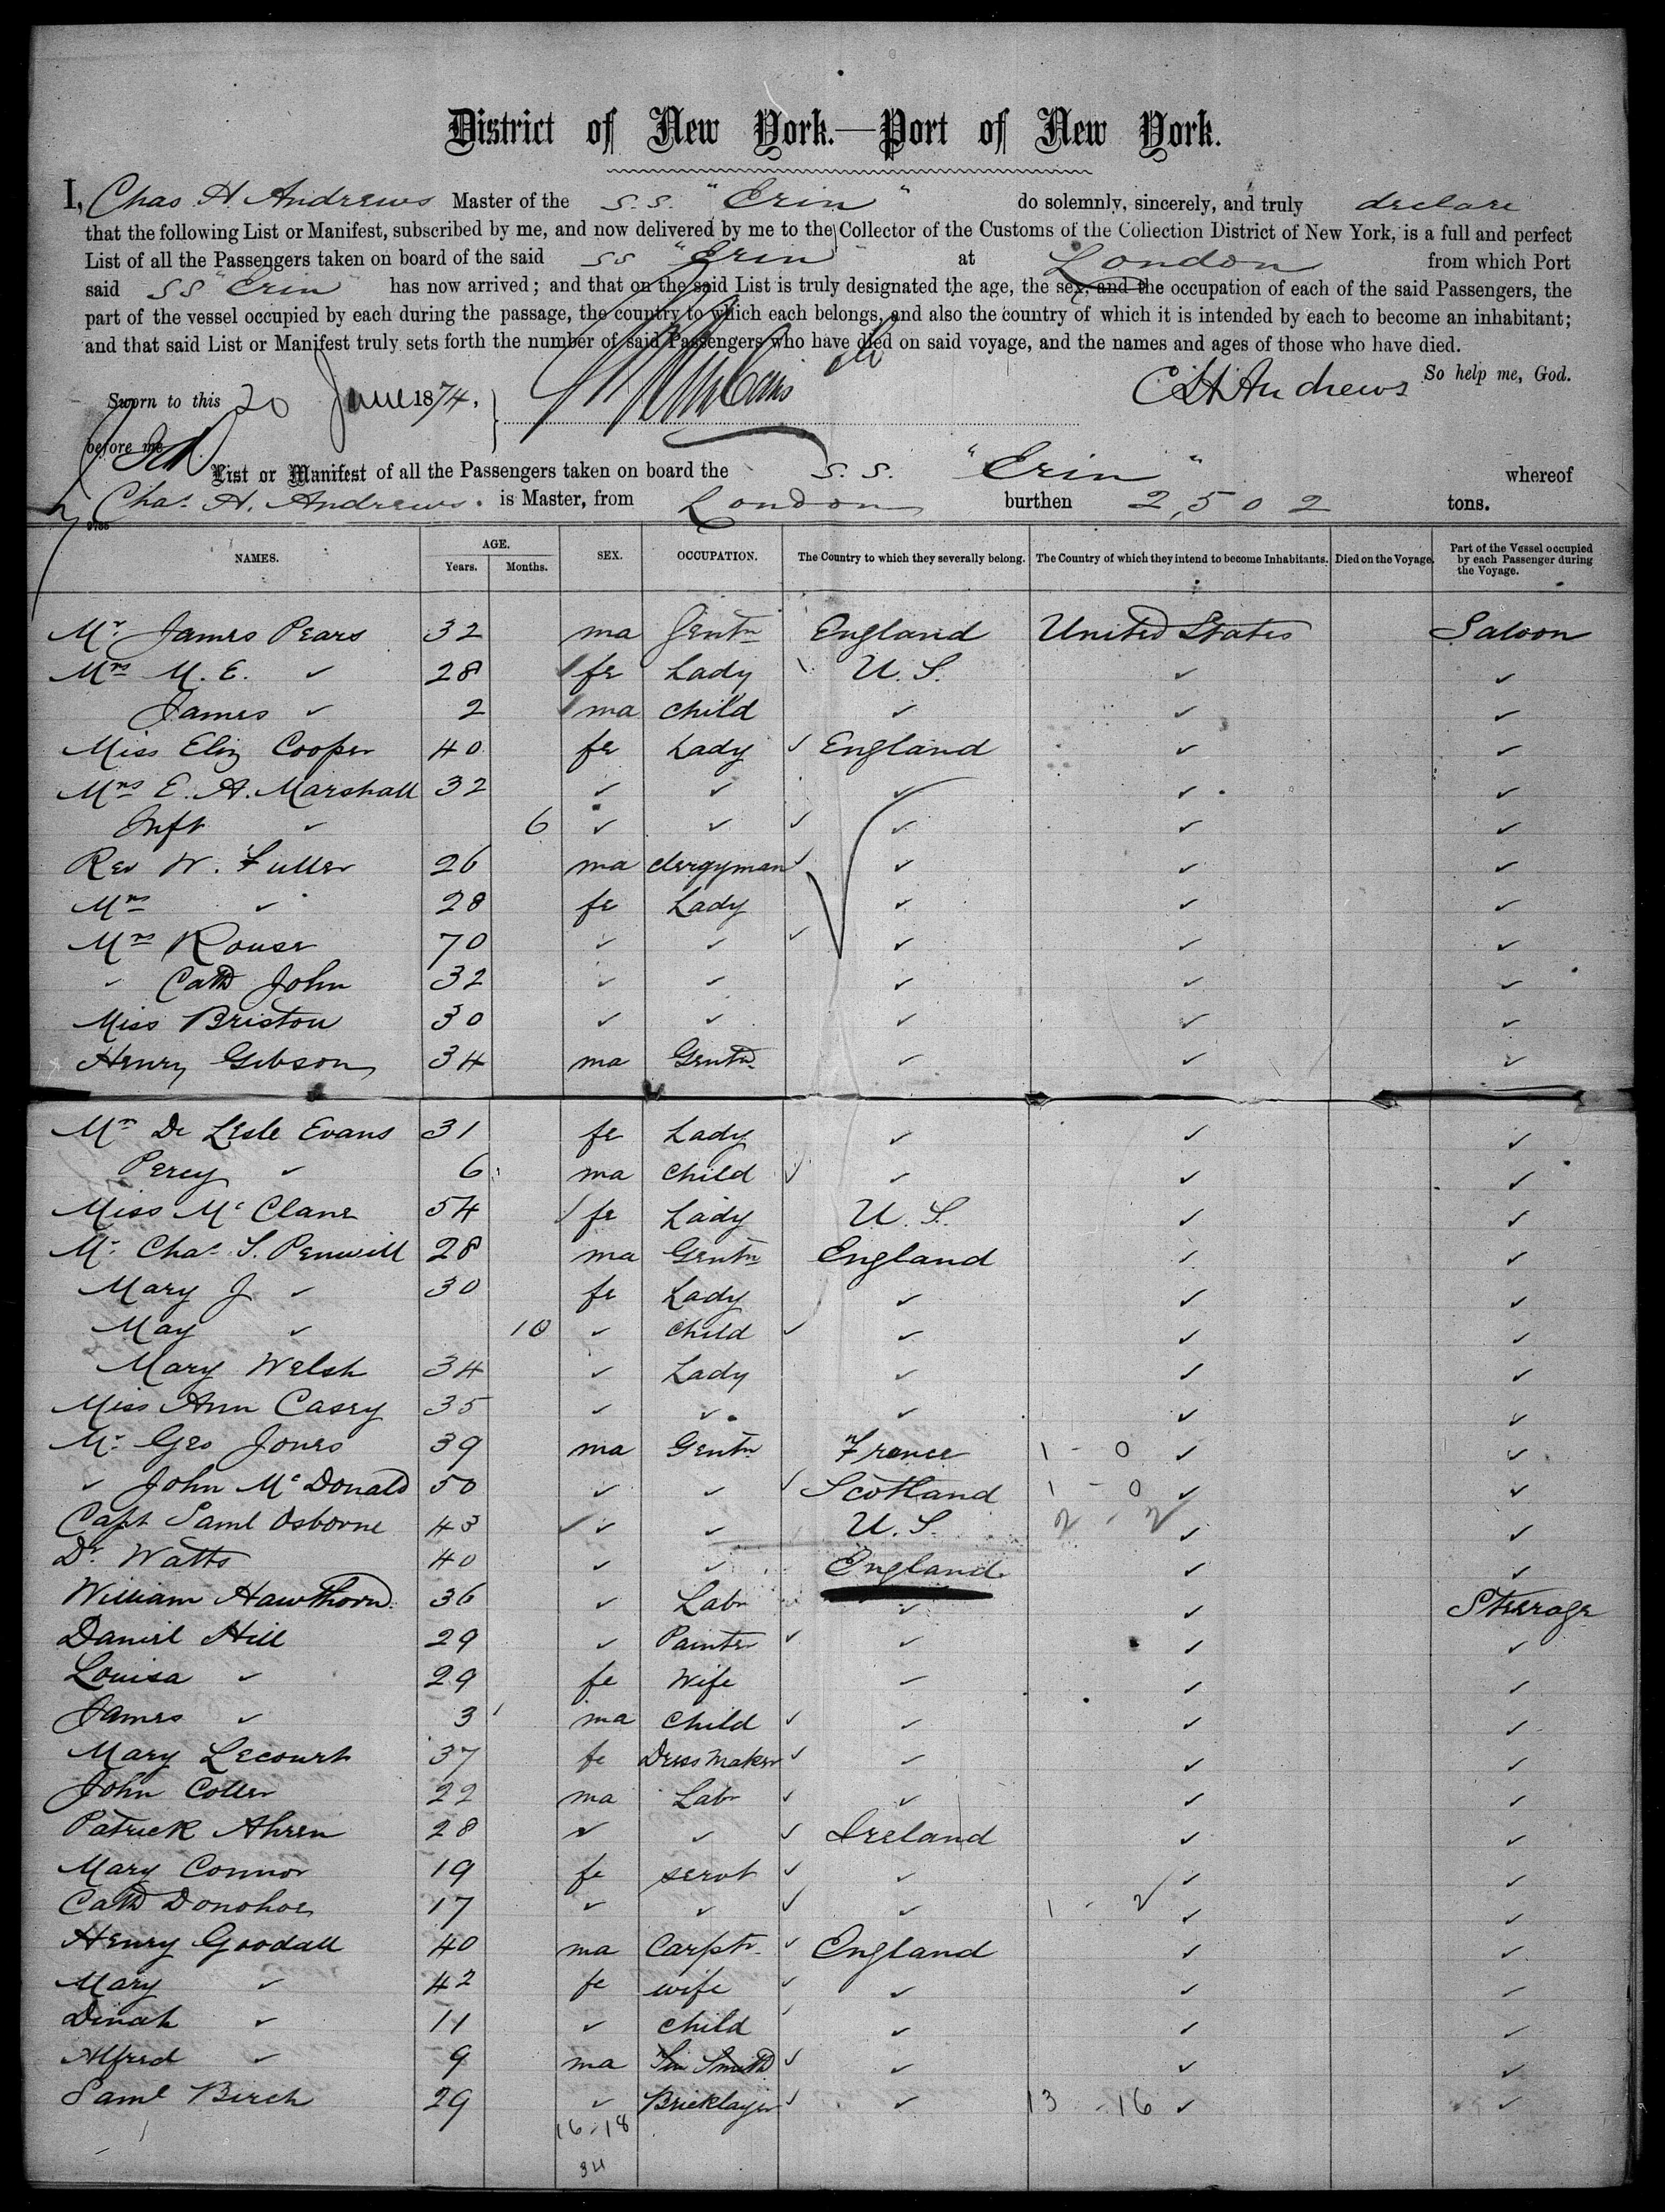 District of New York.—Port of New York.
I, Chas H. Andrews Master of the S.S. "Erin" do solemnly, sincerely, and truly declare
that the following List or Manifest, subscribed by me, and now delivered by me to the Collector of the Customs of the Collection District of New York, is a full and perfect
List of all the Passengers taken on board of the said SS "Erin" at London from which Port
said SS "Erin" has now arrived; and that on the said List is truly designated the age, the sex, and the occupation of each of the said Passengers, the
part of the vessel occupied by each during the passage, the country to which each belongs, and also the country of which it is intended by each to become an inhabitant;
and that said List or Manifest truly sets forth the number of said Passengers who have died on said voyage, and the names and ages of those who have died.
So help me, God.
Sworn to this 20 June 1874. C H Andrews
before me
List or Manifest of all the Passengers taken on board the S.S. "Erin" whereof
Chas. H. Andrews. is Master, from London burthen 2,502 tons.
NAMES. AGE. Years. Months. SEX. OCCUPATION. The Country to which they severally belong. The Country of which they intend to become Inhabitants. Died on the Voyage. Part of the Vessel occupied by each Passenger during the Voyage.
Mr. James Pears 32 ma Gentn England United States Saloon
Mrs M. E. ✓ 28 fe Lady U.S. ✓ ✓
James ✓ 2 ma child ✓ ✓ ✓
Miss Eliz Cooper 40 fe Lady ✓ England ✓ ✓
Mrs E. A. Marshall 32 ✓ ✓ ✓ ✓ ✓
Inft ✓ 6 ✓ ✓ ✓ ✓ ✓ ✓
Rev W. Fuller 26 ma clergyman ✓ ✓ ✓ ✓
Mrs ✓ 28 fe Lady ✓ ✓ ✓
Mrs Rouse 70 ✓ ✓ ✓ ✓ ✓ ✓
✓ Cath John 32 ✓ ✓ ✓ ✓ ✓
Miss Bristow 30 ✓ ✓ ✓ ✓ ✓
Henry Gibson 34 ma Gentn. ✓ ✓ ✓
Mrs De Lesle Evans 31 fe Lady ✓ ✓ ✓
Percy ✓ 6 ma child ✓ ✓ ✓ ✓
Miss McClane 54 fe Lady U.S. ✓ ✓
Mr. Chas. S. Penwill 28 ma Gentn England ✓ ✓
Mary J ✓ 30 fe Lady ✓ ✓ ✓
May ✓ 10 ✓ child ✓ ✓ ✓ ✓
Mary Welsh 34 ✓ Lady ✓ ✓ ✓
Miss Ann Casey 35 ✓ ✓ ✓ ✓ ✓
Mr. Geo Jones 39 ma Gentn. France 1 - 0 ✓ ✓
✓ John McDonald 50 ✓ ✓ ✓ Scotland 1 - 0 ✓ ✓
Capt Saml Osborne 43 ✓ ✓ U.S. 2 - 2 ✓ ✓
Dr. Watts 40 ✓ ✓ England ✓ ✓
William Hawthorn 36 ✓ Labr ✓ ✓ Steerage
Daniel Hill 29 ✓ Painter ✓ ✓ ✓ ✓
Louisa ✓ 29 fe Wife ✓ ✓ ✓
James ✓ 3 ma child ✓ ✓ ✓ ✓
Mary Lecourt 37 fe Dress Maker ✓ ✓ ✓ ✓
John Coller 22 ma Labr ✓ ✓ ✓ ✓
Patrick Ahren 28 ✓ ✓ ✓ Ireland ✓ ✓
Mary Connor 19 fe servt ✓ ✓ ✓ ✓
Cath Donohoe 17 ✓ ✓ ✓ ✓ 1 - 2 ✓ ✓
Henry Goodall 40 ma Carptr. ✓ England ✓ ✓
Mary ✓ 42 fe wife ✓ ✓ ✓ ✓
Dinah ✓ 11 ✓ child ✓ ✓ ✓
Alfred ✓ 9 ma Tin Smith ✓ ✓ ✓ ✓
Saml Birch 29 ✓ Bricklayer ✓ ✓ 13 - 16 ✓ ✓
16-18
34